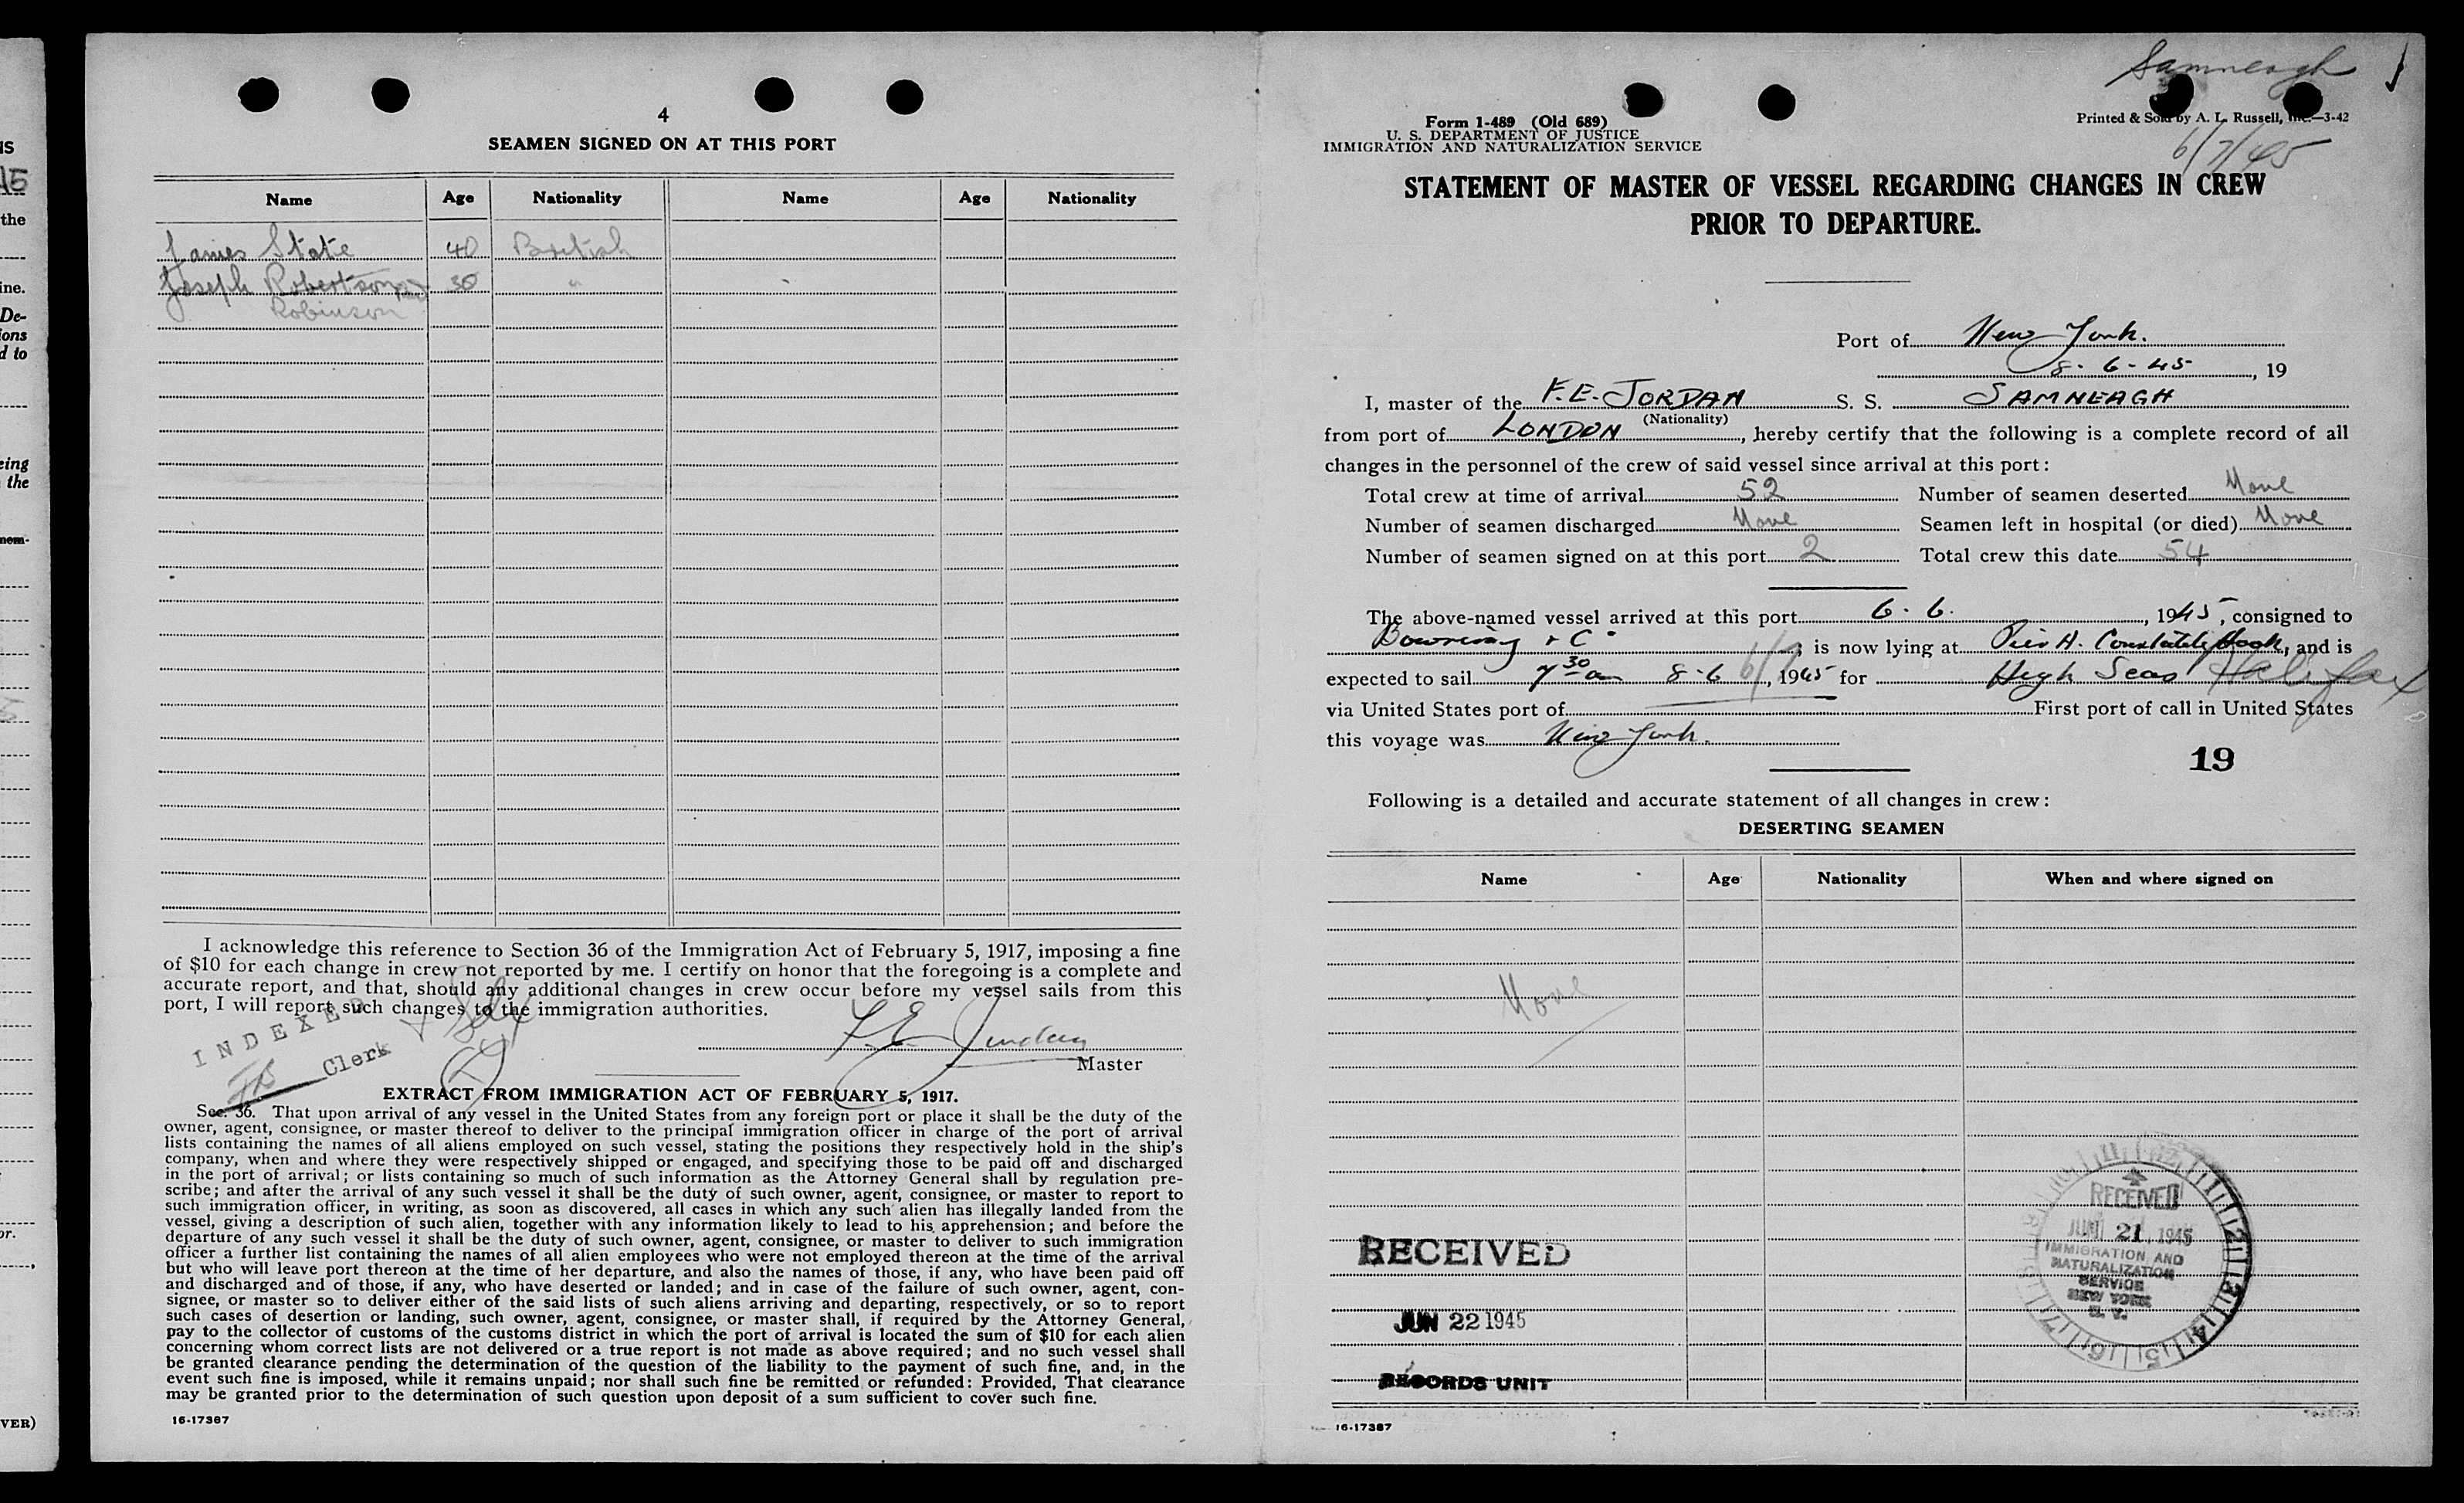 NS
45
the
ine.
De-
ions
d to
eing
the
nem-
or.
VER)
4
SEAMEN SIGNED ON AT THIS PORT
Name Age Nationality Name Age Nationality
James State 40 British
Joseph Robertson 30 "
Robinson
I acknowledge this reference to Section 36 of the Immigration Act of February 5, 1917, imposing a fine
of $10 for each change in crew not reported by me. I certify on honor that the foregoing is a complete and
accurate report, and that, should any additional changes in crew occur before my vessel sails from this
port, I will report such changes to the immigration authorities.
INDEXED
Clerk
F. E. Jordan
Master
EXTRACT FROM IMMIGRATION ACT OF FEBRUARY 5, 1917.
Sec. 36. That upon arrival of any vessel in the United States from any foreign port or place it shall be the duty of the
owner, agent, consignee, or master thereof to deliver to the principal immigration officer in charge of the port of arrival
lists containing the names of all aliens employed on such vessel, stating the positions they respectively hold in the ship's
company, when and where they were respectively shipped or engaged, and specifying those to be paid off and discharged
in the port of arrival; or lists containing so much of such information as the Attorney General shall by regulation pre-
scribe; and after the arrival of any such vessel it shall be the duty of such owner, agent, consignee, or master to report to
such immigration officer, in writing, as soon as discovered, all cases in which any such alien has illegally landed from the
vessel, giving a description of such alien, together with any information likely to lead to his apprehension; and before the
departure of any such vessel it shall be the duty of such owner, agent, consignee, or master to deliver to such immigration
officer a further list containing the names of all alien employees who were not employed thereon at the time of the arrival
but who will leave port thereon at the time of her departure, and also the names of those, if any, who have been paid off
and discharged and of those, if any, who have deserted or landed; and in case of the failure of such owner, agent, con-
signee, or master so to deliver either of the said lists of such aliens arriving and departing, respectively, or so to report
such cases of desertion or landing, such owner, agent, consignee, or master shall, if required by the Attorney General,
pay to the collector of customs of the customs district in which the port of arrival is located the sum of $10 for each alien
concerning whom correct lists are not delivered or a true report is not made as above required; and no such vessel shall
be granted clearance pending the determination of the question of the liability to the payment of such fine, and, in the
event such fine is imposed, while it remains unpaid; nor shall such fine be remitted or refunded: Provided, That clearance
may be granted prior to the determination of such question upon deposit of a sum sufficient to cover such fine.
16-17387
Samneagh
Form 1-489 (Old 689)
U. S. DEPARTMENT OF JUSTICE
IMMIGRATION AND NATURALIZATION SERVICE
Printed & Sold by A. L. Russell, Inc.—3-42
6/7/45
STATEMENT OF MASTER OF VESSEL REGARDING CHANGES IN CREW
PRIOR TO DEPARTURE.
Port of New York.
8-6-45, 19
I, master of the F. E. JORDAN S. S. SAMNEAGH
(Nationality)
from port of LONDON, hereby certify that the following is a complete record of all
changes in the personnel of the crew of said vessel since arrival at this port:
Total crew at time of arrival 52 Number of seamen deserted None
Number of seamen discharged None Seamen left in hospital (or died) None
Number of seamen signed on at this port 2 Total crew this date 54
The above-named vessel arrived at this port 6-6-, 1945, consigned to
Bowring & Co; is now lying at Pier H. Constable Hook, and is
expected to sail 7 30 am 8-6 6/7, 1945 for High Seas Halifax
via United States port of First port of call in United States
this voyage was New York.
19
Following is a detailed and accurate statement of all changes in crew:
DESERTING SEAMEN
Name Age Nationality When and where signed on
None
RECEIVED
JUN 22 1945
RECORDS UNIT
RECEIVED
JUN 21 1945
IMMIGRATION AND
NATURALIZATION
SERVICE
NEW YORK
N. Y.
16-17387